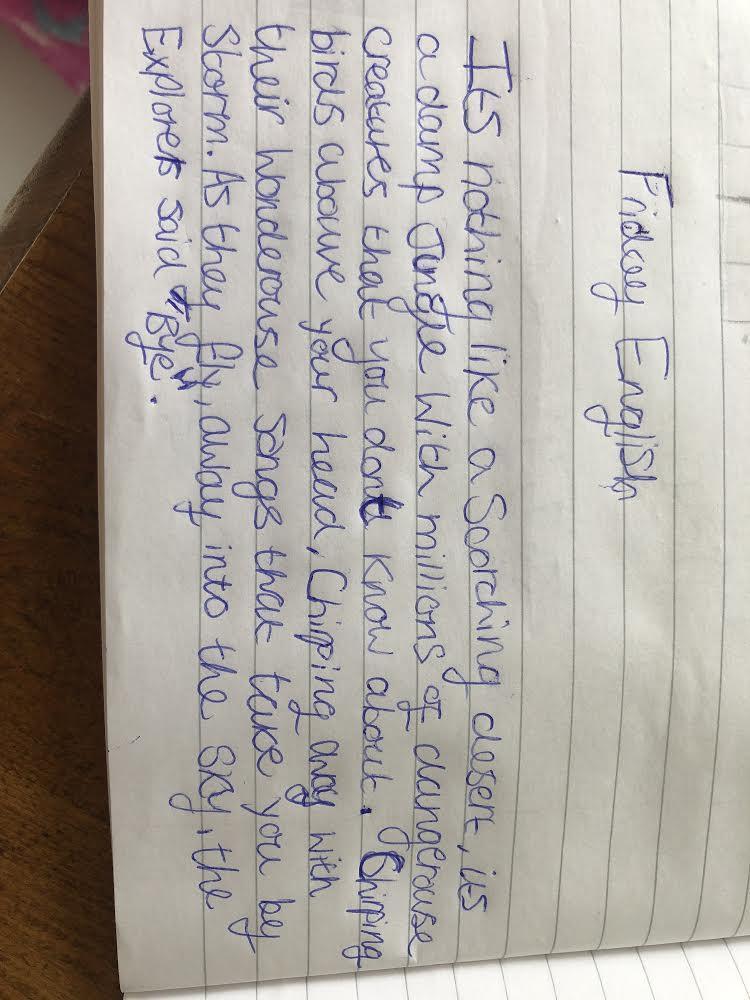 Friday English
Its nothing like a Scorching desert, its
a damp Jungle With millions of dangerouse
creatures that you dont Know about. Chirping
birds abouve your head, Chirping away with
their Wonderouse Songs that take you by
Storm. As they fly, away into the Sky, the
Explorers said "Bye".